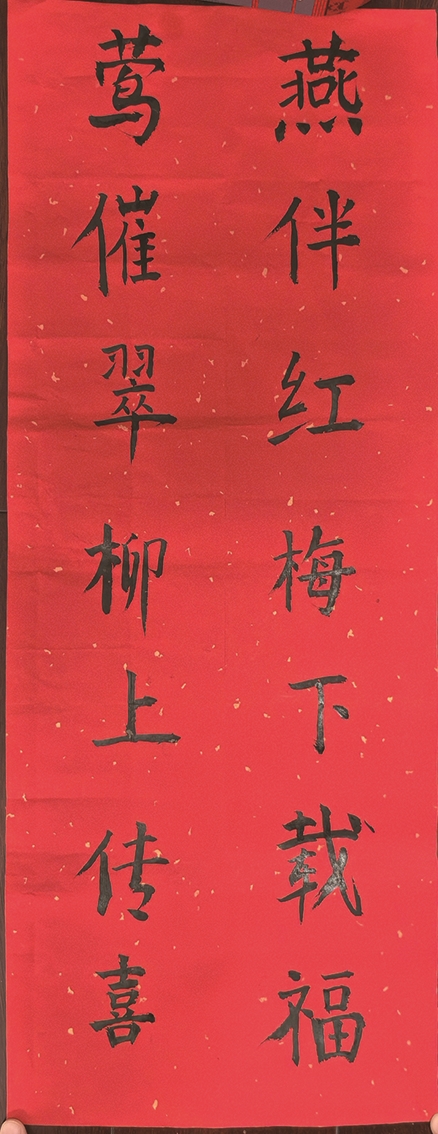 燕伴红梅下载福
莺催翠柳上传喜